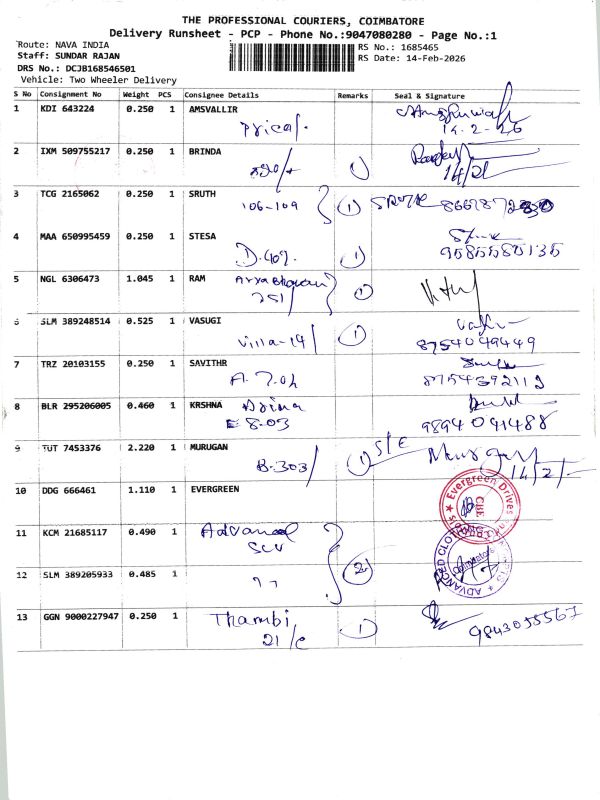 THE PROFESSIONAL COURIERS, COIMBATORE
Delivery Runsheet - PCP - Phone No.:9047080280 - Page No.:1
Route: NAVA INDIA
Staff: SUNDAR RAJAN
DRS No.: DCJB168546501
Vehicle: Two Wheeler Delivery
RS No.: 1685465
RS Date: 14-Feb-2026
S No Consignment No Weight PCS Consignee Details Remarks Seal & Signature
1 KDI 643224 0.250 1 AMSVLLIR
Prical. 14-2-26
2 IXM 509755217 0.250 1 BRINDA
1 14/2/
3 TCG 2165062 0.250 1 SRUTH
106-109 1
4 MAA 650995459 0.250 1 STESA
D.409. 1 9585580135
5 NGL 6306473 1.045 1 RAM Aryabhavan
251/ 1
6 SLM 389248514 0.525 1 VASUGI
Villa-14/ 1 8754049449
7 TRZ 20103155 0.250 1 SAVITHR
A. 7.02 8754392112
8 BLR 295206005 0.460 1 KRSHNA
E 8-03 9894041488
9 TUT 7453376 2.220 1 MURUGAN S/E
B-303/ 1 14/2/-
10 DDG 666461 1.110 1 EVERGREEN
Evergreen Drives
CBE
11 KCM 21685117 0.490 1 Advanced
SCV
ADVANCED
Coimbatore
12 SLM 389205933 0.485 1 " 2
13 GGN 9000227947 0.250 1 Thambi
21/c 1 9843055567